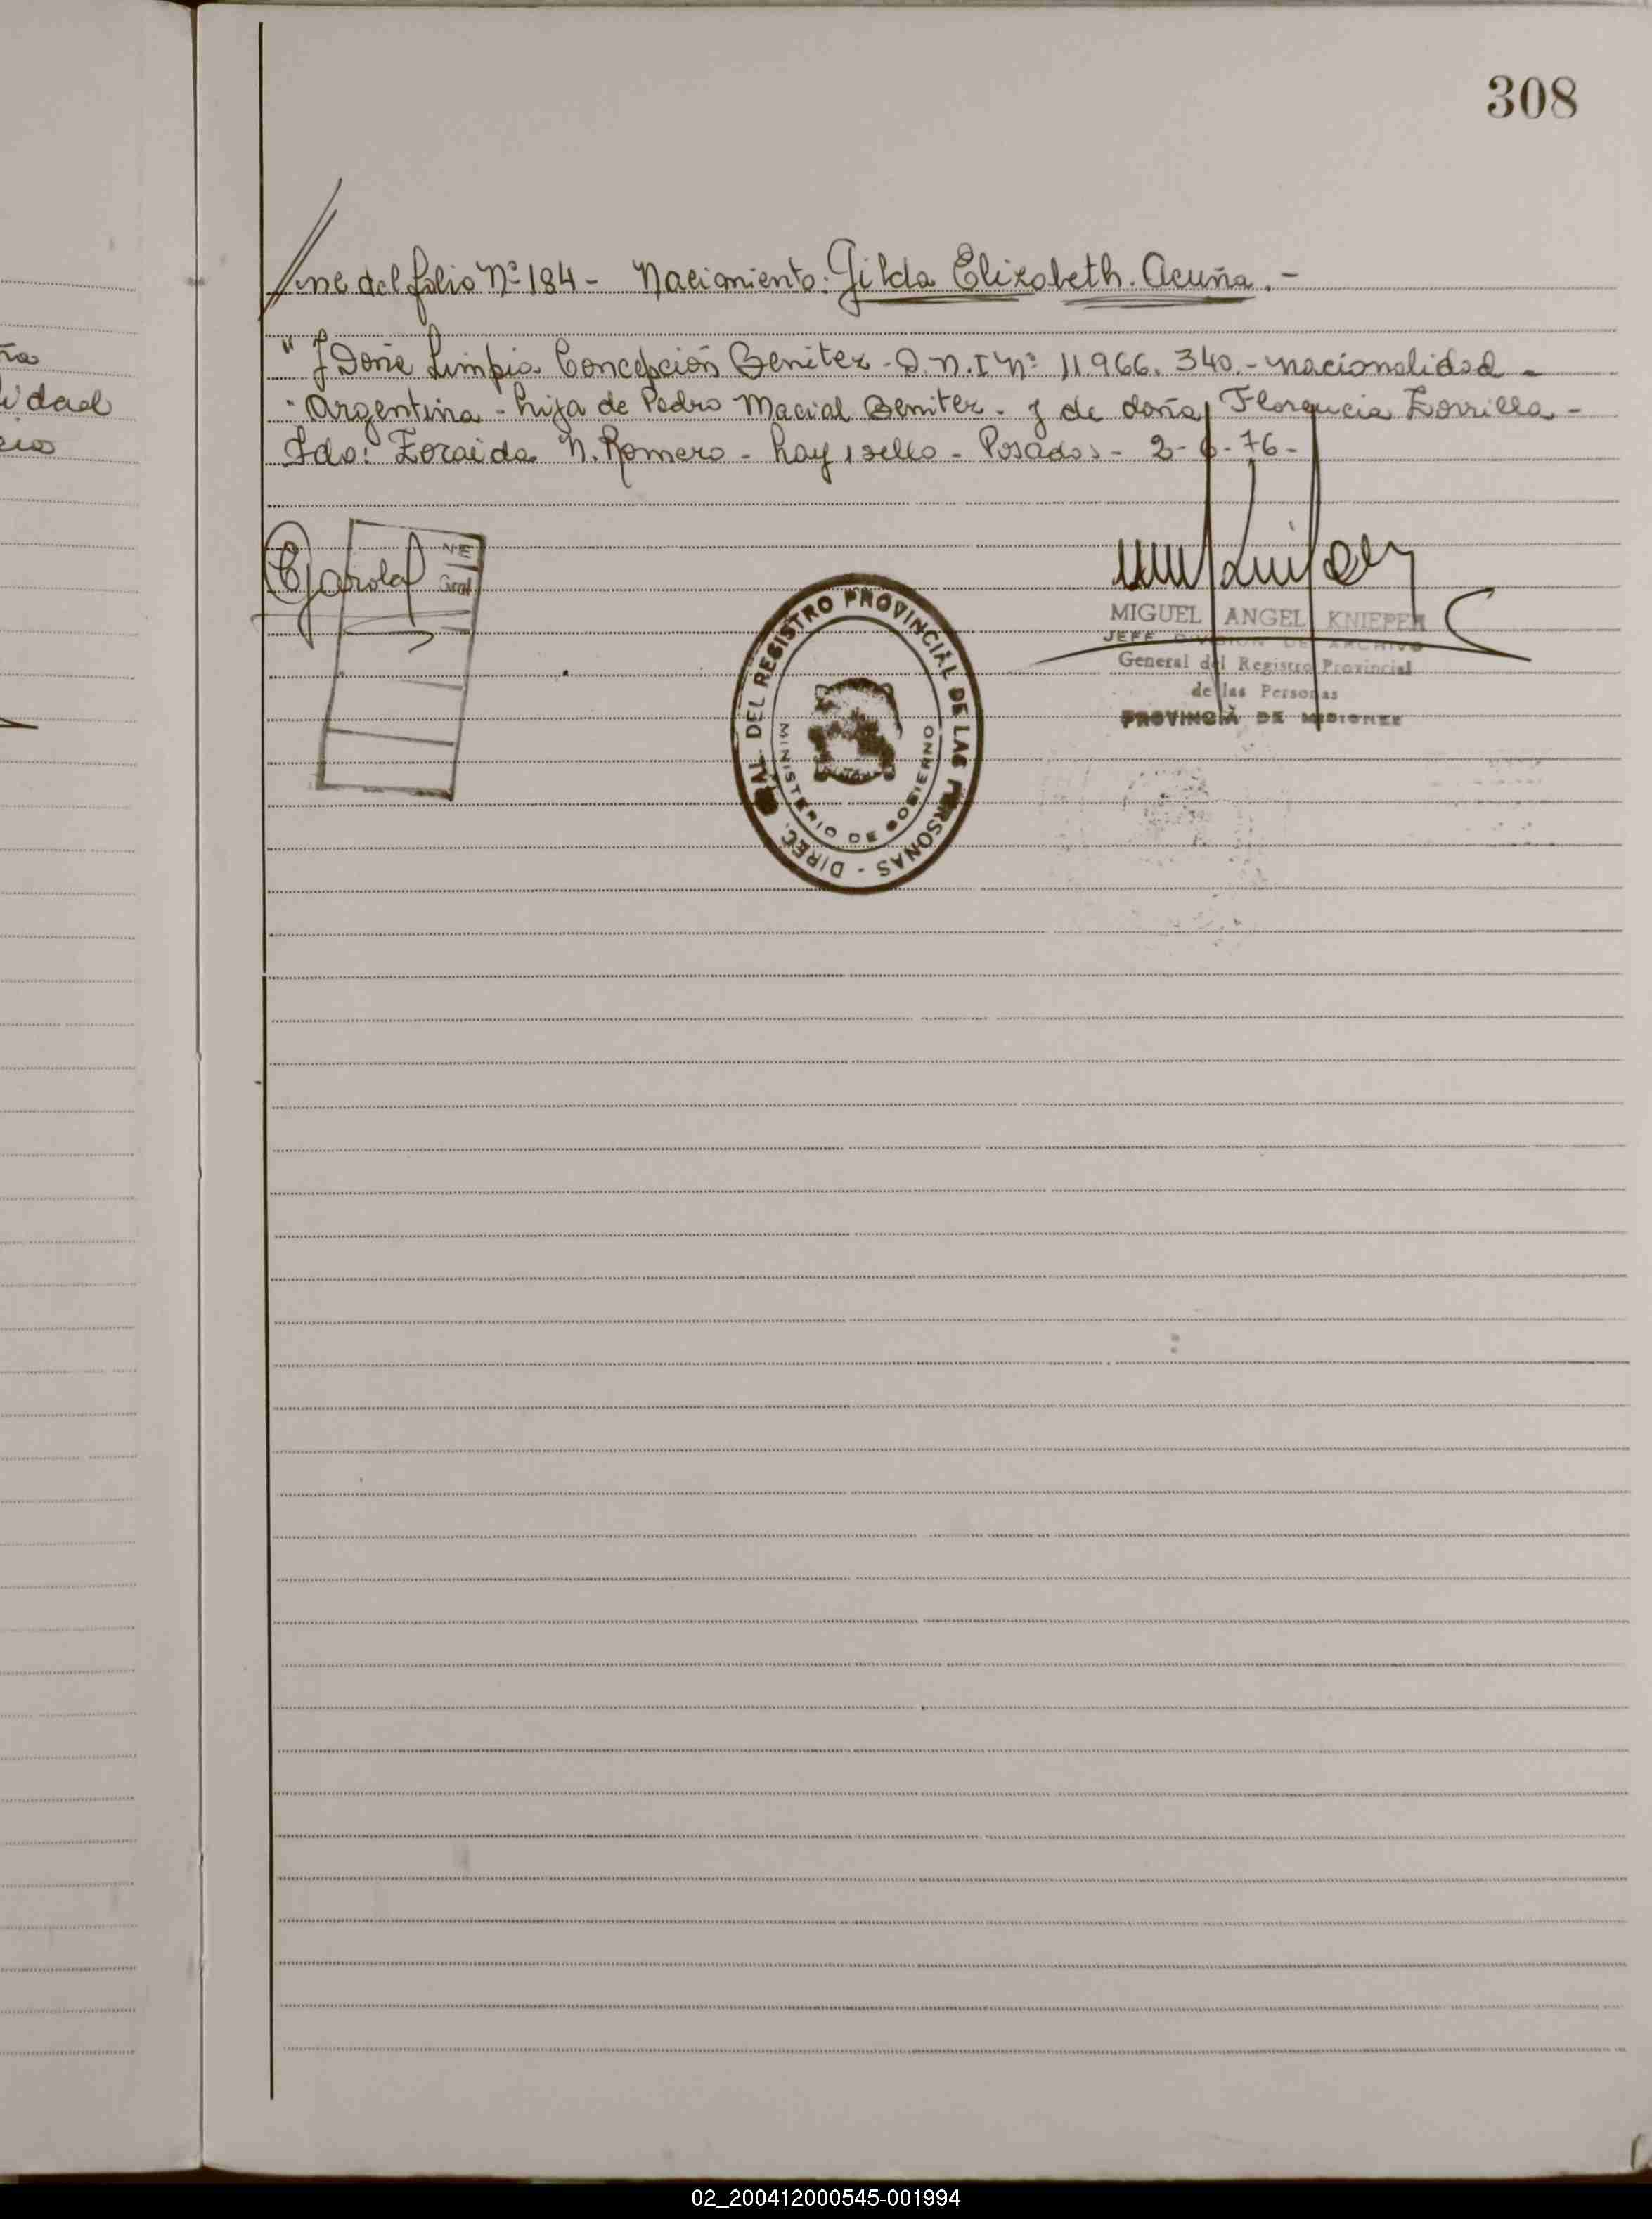 308
//ene del folio Nº 184 - Nacimiento: Gilda Elizabeth. Acuña. -
" y Doña Limpia Concepción Benitez - D.N.I Nº 11.966.340. - nacionalidad -
" Argentina - hija de Pedro Macial Benitez - y de doña Zorrilla -
Fdo: Zoraida N. Romero - hay 1 sello - Posadas - 2-6-76 -
NE
Gral
MIGUEL ANGEL KNIEPER
JEFE DIVISION DE ARCHIVO
General del Registro Provincial
de las Personas
PROVINCIA DE MISIONES
DIREC. GRAL. DEL REGISTRO PROVINCIAL DE LAS PERSONAS -
MINISTERIO DE GOBIERNO
ña
idad
cia
02_200412000545-001994